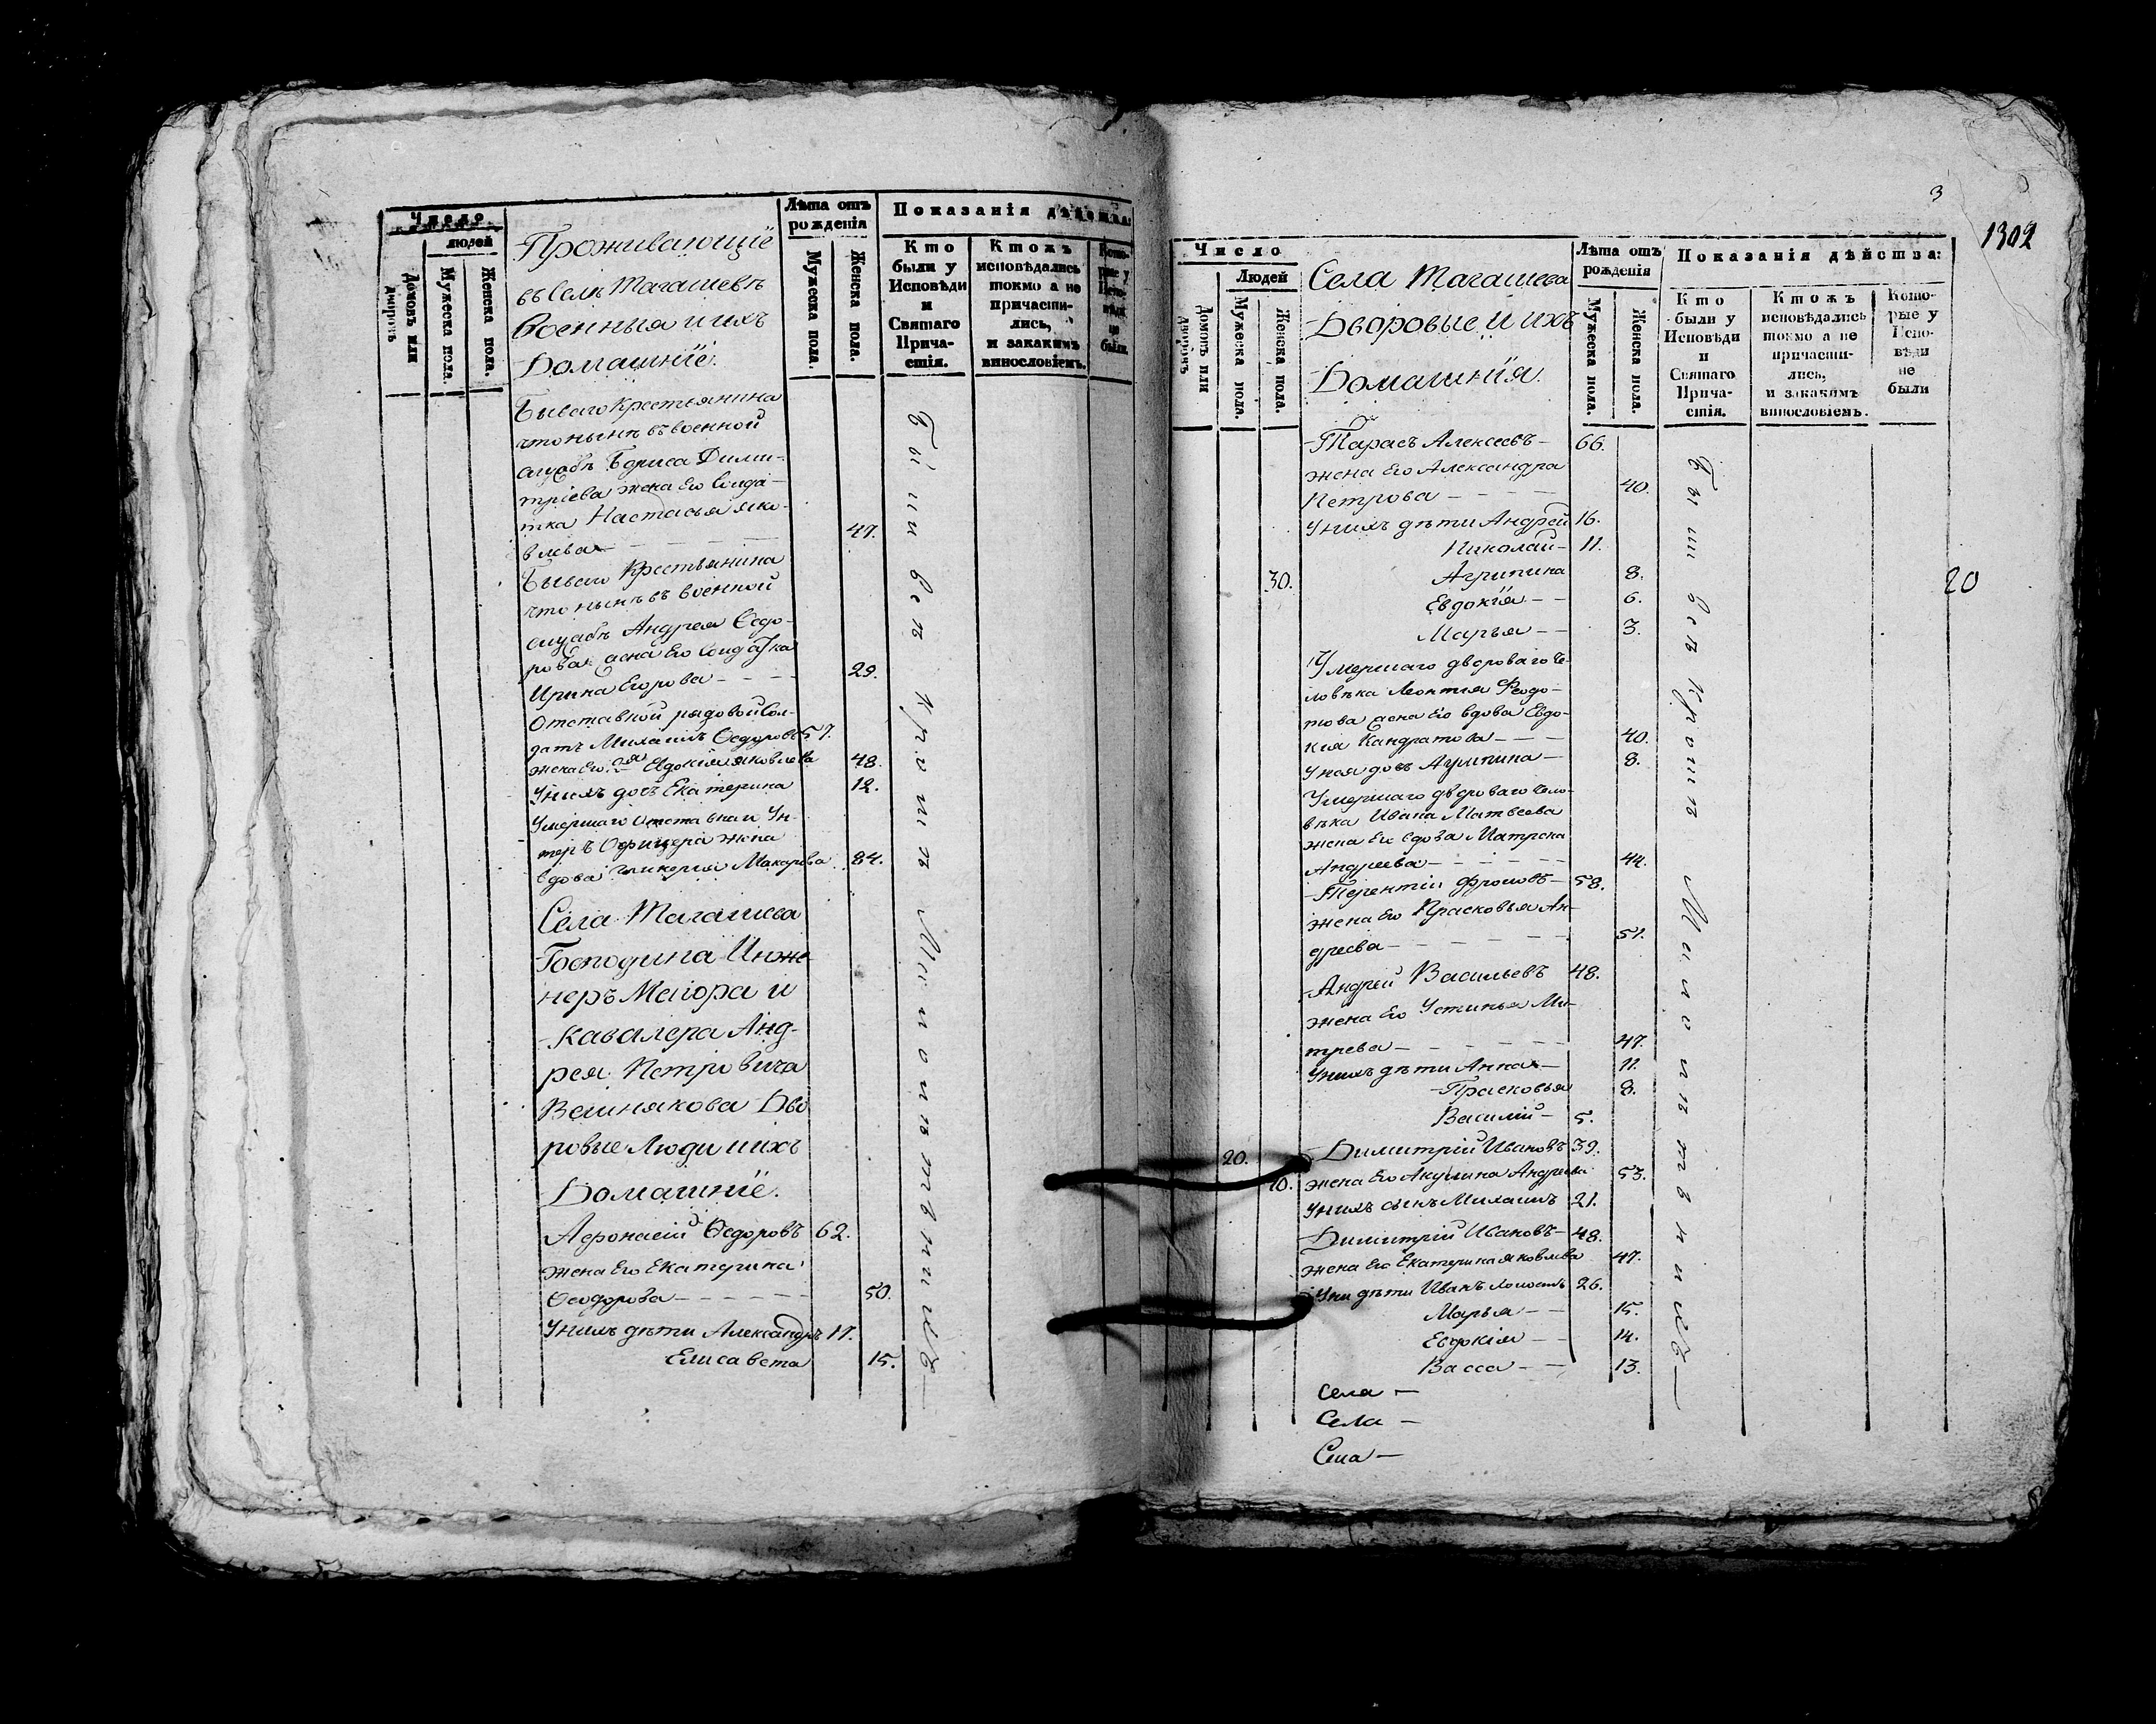 Число
людей
Домовъ или дворовъ
Мужеска пола.
Женска пола.
Проживающіе
въ Селѣ Тагашевѣ
военныя и ихъ
Домашніе.
Лѣта отъ рожденія
Мужеска пола.
Женска пола.
Показанія дѣйства:
Кто были у Исповѣди и Святаго Причастія.
Ктожъ исповѣдались токмо а не причастились, и закакимъ винословіемъ.
Которые у Исповѣди не были.
Бываго Крестьянина
что нынѣ въ военной
службѣ Бориса Дими-
тріева жена Его Солда-
тка Настасья Яко-
влева - - - 47.
Бываго Крестьянина
что нынѣ въ военной
службѣ Андрея Ѳедо-
рова жена Его Солдатка
Ирина Егорова - - - 29.
Отставной рядовой Сол-
датъ Михаилъ Ѳедоровъ 57.
жена Его 2я Евдокія Яковлева 48.
У нихъ дочь Екатерина 12.
Умершаго отставнаго Ун-
теръ Офицера жена
вдова Гликерия Макарова 84.
Села Тагашева
Господина Инже-
неръ Маіора и
Кавалера Анд-
рея Петровича
Вешнякова Дво
ровые Люди и ихъ
Домашніе.
Афонасій Ѳедоровъ 62.
жена Его Екатерина
Ѳеодорова - - - - - 50.
У нихъ дѣти Александръ 17.
Елисавета 15.
Были всѣ кромѣ Малолѣтнихъ
3
1302
Число
Людей
Домовъ или дворовъ
Мужеска пола.
Женска пола.
Села Тагашева
Дворовые и ихъ
Домашнія.
Лѣта отъ рожденія
Мужеска пола.
Женска пола.
Показанія дѣйства:
Кто были у Исповѣди и Святаго Причастія.
Ктожъ исповѣдались токмо а не причастились, и закакимъ винословіемъ.
Которые у Исповѣди не были
Тарасъ Алексеевъ - 66.
жена Его Александра
Петрова - - - 40.
У нихъ дѣти Андрей 16.
Николай - 11.
30. Агрипина 8. 20
Евдокія - - 6.
Марья - - 3.
Умершаго двороваго че-
ловѣка Леонтія Феодо-
това жена Его вдова Евдо-
кия Кандратова - - - 40.
У нея дочь Агрипина - 8.
Умершаго двороваго чело-
вѣка Ивана Матвеева
жена Его вдова Матрена
Андреева - - - - - 44.
Терентій Фроловъ - 58.
жена Его Прасковья Ан-
дреева - - - - - 51.
Андрей Васильевъ 48.
жена Его Устинья Ми-
трева - - - - - 47.
У нихъ дѣти Анна - 11.
Прасковья 8.
Василій - 5.
20. Димитрій Ивановъ 39.
жена Его Акулина Андреева 53.
У нихъ сынъ Михаилъ 21.
Димитрій Ивановъ - 48.
жена Его Екатерина Яковлева 47.
У ни дѣти Иванъ холостъ 26.
Марья - - 15.
Евдокія - - 14.
Васса - - 13.
Были всѣ кромѣ Малолѣтнихъ
села -
Села -
Села -